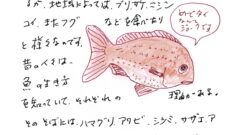 るが、地域によっては、ブリ、サケ、ニシン
コイ、またフグ などを食べたり
と様々なのです。
昔の人々は、
魚の生き方
を知っていて、それぞれの
理由がある。
その そばには、ハマグリ、アワビ、シジミ、サザエ、ア
めでタイ